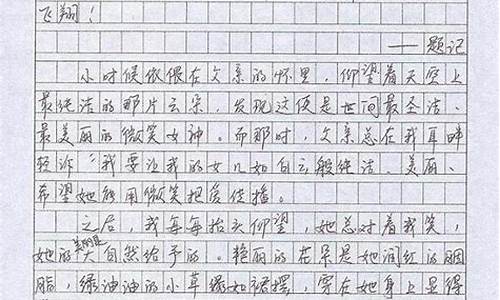 飞翔!
——题记
小时候依偎在父亲的怀里,仰望着天空上
最纯洁的那片云朵,发现这便是世间最圣洁、
最美丽的微笑女神。而那时,父亲总在我耳畔
轻诉“我要让我的女儿如白云般纯洁、美丽、
希望她能用微笑把爱传播。
之后,我每每抬头仰望,她总对着我笑,
她的美丽是大自然给予的。艳丽的花朵是她润红的胭
脂,绿油油的小草缘如裙摆,穿在她身上是得